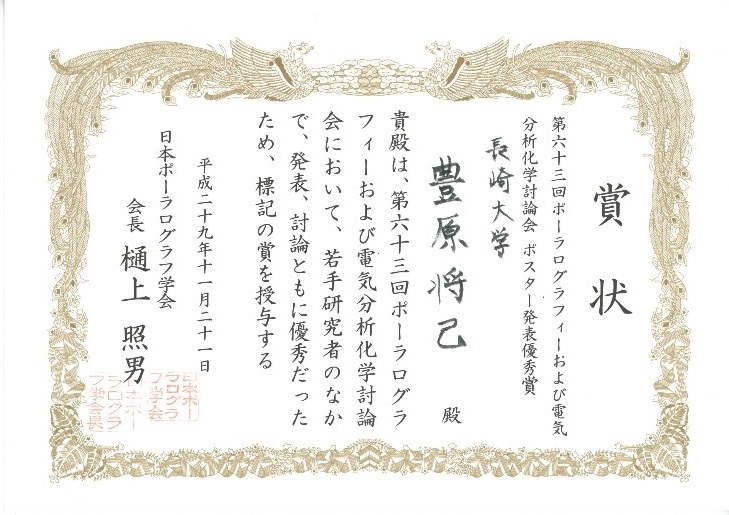 賞状
第六十三回ポーラログラフィーおよび電気
分析化学討論会 ポスター発表優秀賞
長崎大学
豊原将己 殿
貴殿は、第六十三回ポーラログラ
フィーおよび電気分析化学討論
会において、若手研究者のなか
で、発表、討論ともに優秀だった
ため、標記の賞を授与する
平成二十九年十一月二十一日
日本ポーラログラフ学会
会長 樋上 照男
日本ポー
ラログラ
フ学会
日本ポー
ラログラ
フ学会長